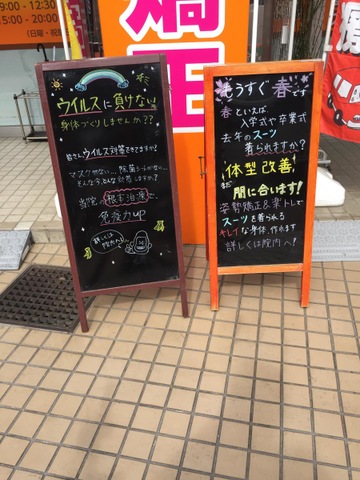 9:00 - 12:30
15:00 - 19:
(日曜・祝
矯正
ウイルスに負けない
身体づくりしませんか??
皆さんウイルス対策できてますか?
マスクがない…、除菌シートがない…
当院の根本治療で、
免疫力up
詳しくは
院内へ!
もうすぐ春です
春といえば、
入学式や卒業式
去年のスーツ
着られますか?
体型改善
まだ
間に合います!
姿勢矯正&楽トレで
スーツを着られる
キレイな身体、作れます
詳しくは院内へ!